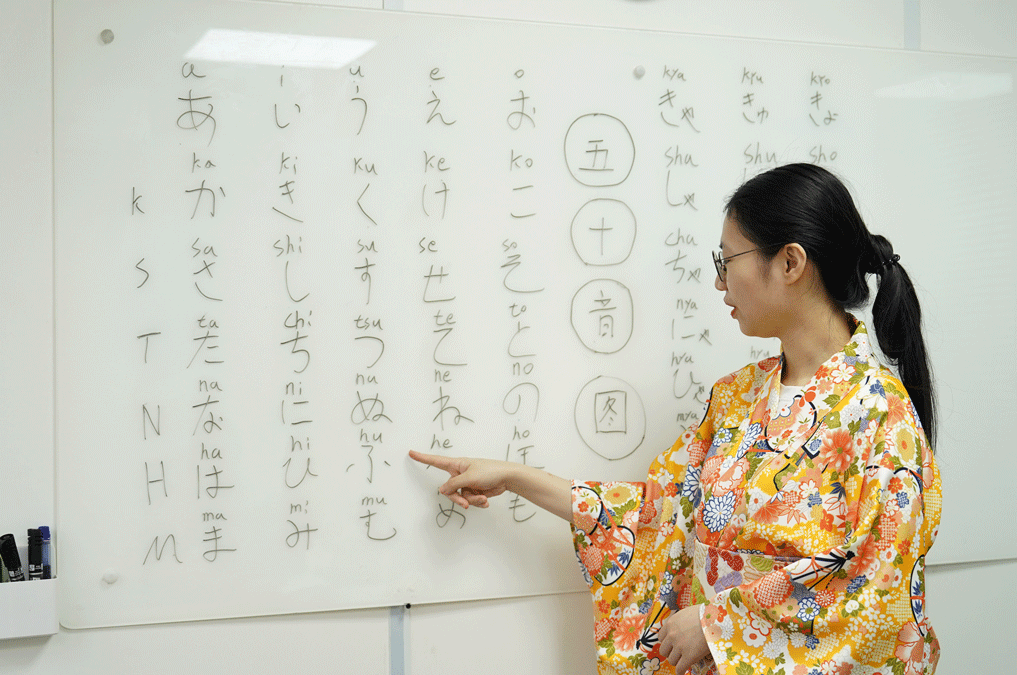 a i u e o
あ い う え お
ka ki ku ke ko
k か き く け こ
sa shi su se so
S さ し す せ そ
ta chi tsu te to
T た ち つ て と
na ni nu ne no
N な に ぬ ね の
ha hi hu he ho
H は ひ ふ ほ
ma mi mu
M ま み む め も
五
十
音
图
kya kyu kyo
きゃ きゅ きょ
sha shu sho
しゃ
cha
ちゃ
nya
にゃ
hya
ひゃ
mya